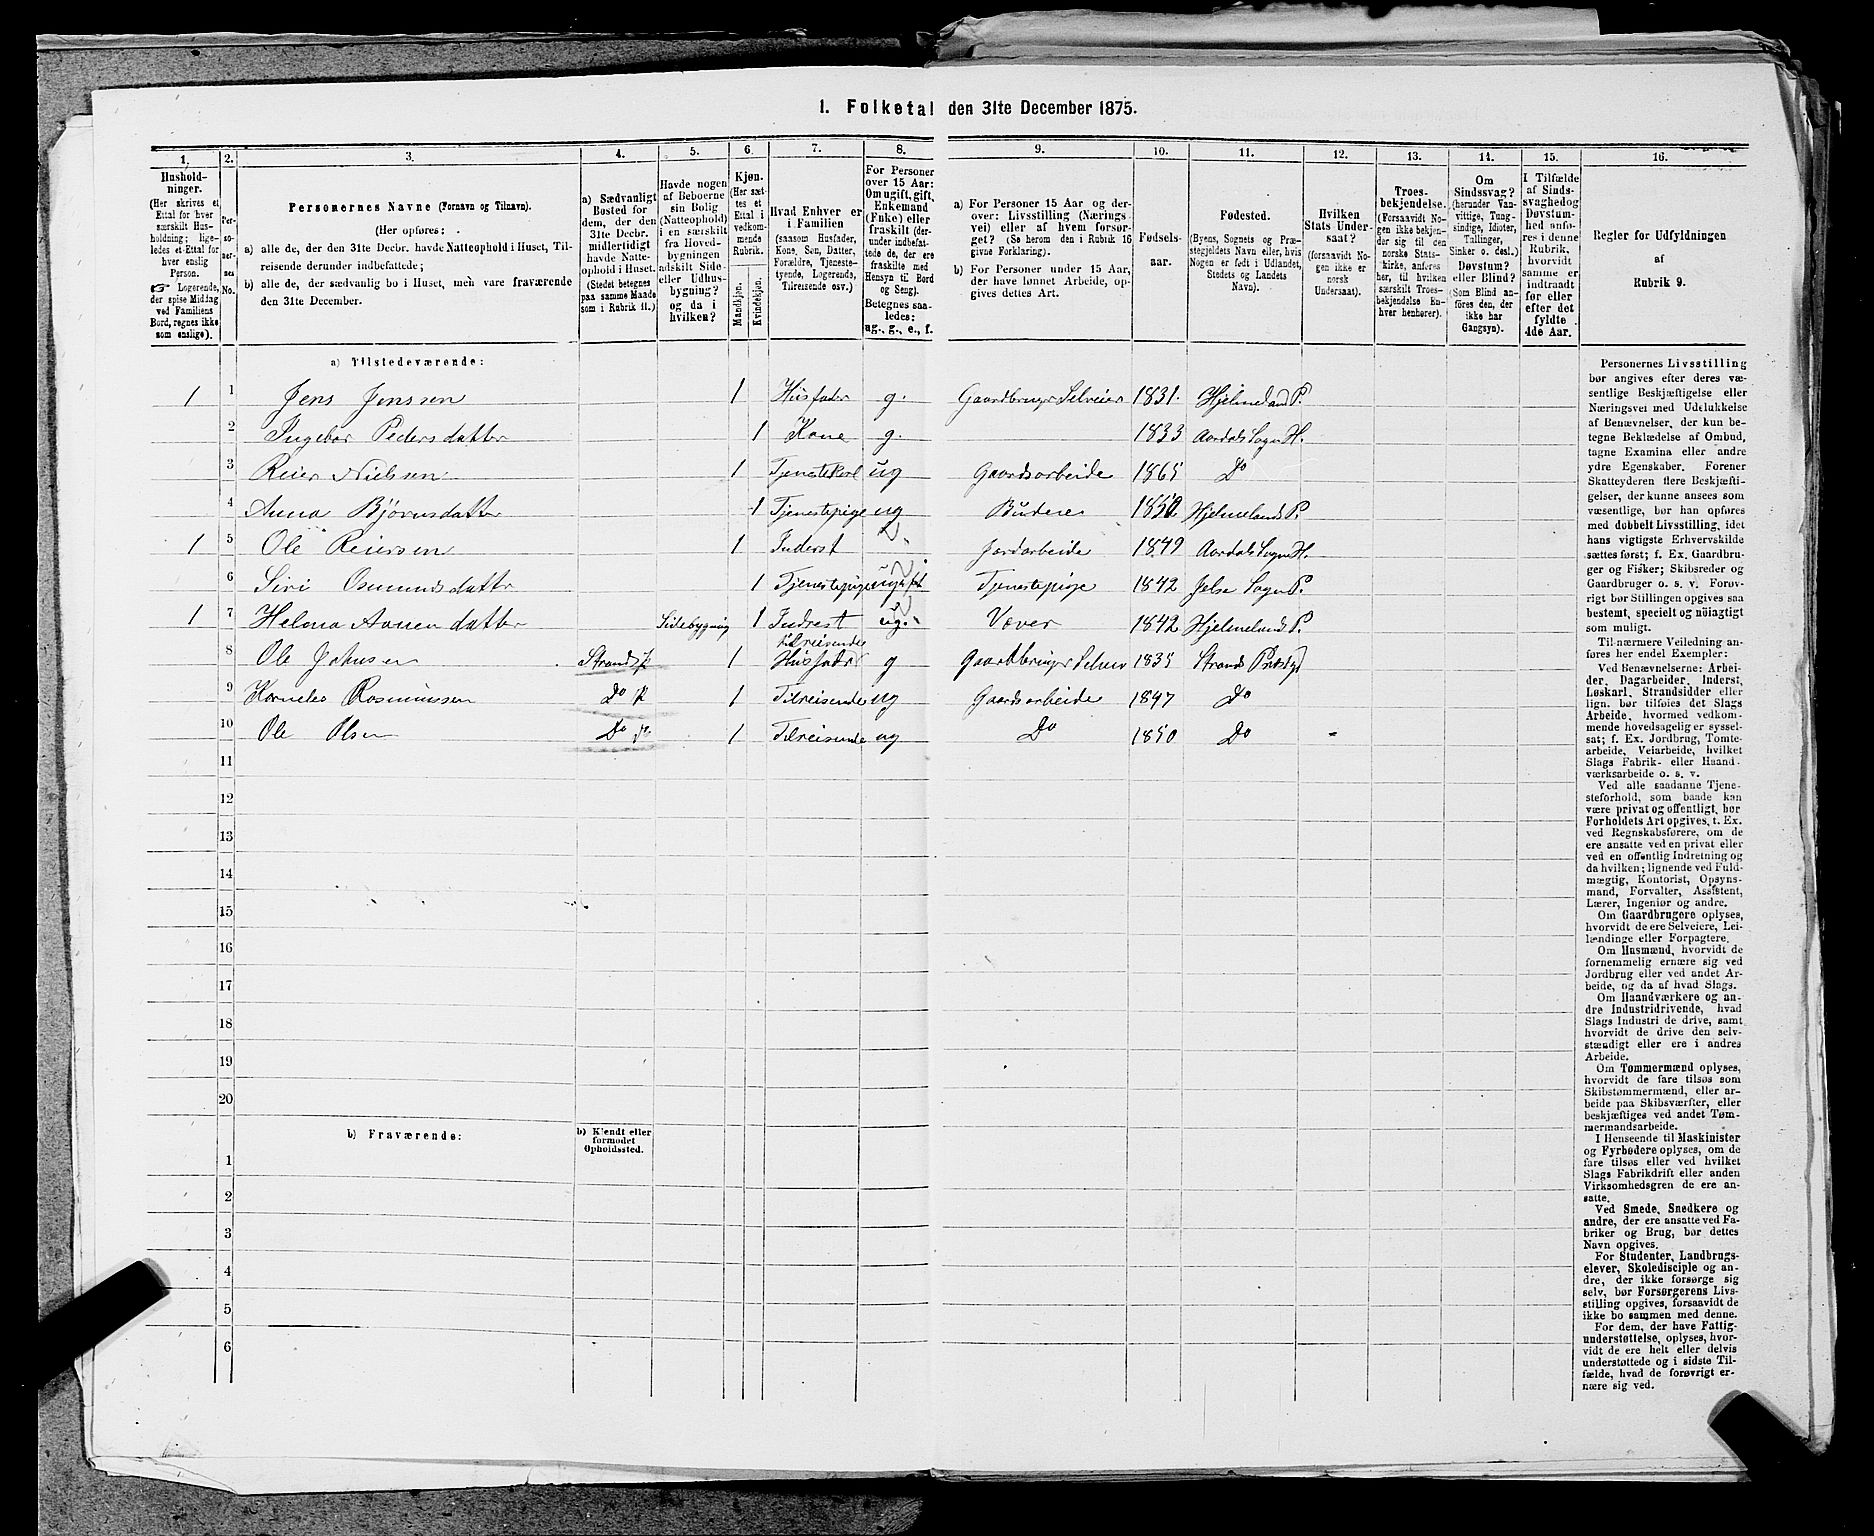 1. Folketal den 31te December 1875.
1. 2. 3. 4. 5. 6. 7. 8. 9. 10. 11. 12. 13. 14. 15. 16.
Hushold-
ninger.
(Her skrives et
Ettal for hver
særskilt Hus-
holdning; lige-
ledes et Ettal for
hver enslig
Person.
☞ Logerende,
der spise Middag
ved Familiens
Bord, regnes ikke
som enslige).
Per-
so-
ner-
nes
No.
Personernes Navne (Fornavn og Tilnavn).
(Her opføres:
a) alle de, der den 31te Decbr. havde Natteophold i Huset, Til-
reisende derunder indbefattede;
b) alle de, der sædvanlig bo i Huset, men vare fraværende
den 31te December.
a) Sædvanligt
Bosted for
dem, der den
31te Decbr.
midlertidigt
havde Natte-
ophold i Huset.
(Stedet betegnes
paa samme Maade
som i Rubrik 11.)
Havde nogen
af Beboerne
sin Bolig
(Natteophold)
i en særskilt
fra Hoved-
bygningen
adskilt Side-
eller Udhus-
bygning?
og da i
hvilken?
Kjøn.
(Her sæt-
tes et
Ettal i
vedkom-
mende
Rubrik.
Mandkjøn.
Kvindekjøn.
Hvad Enhver er
i Familien
(saasom Husfader,
Kone, Søn, Datter,
Forældre, Tjeneste-
tyende, Logerende,
Tilreisende osv.)
For Personer
over 15 Aar:
Om ugift, gift,
Enkemand
(Enke) eller
fraskilt (der-
under indbefat-
tede de, der ere
fraskilte med
Hensyn til Bord
og Seng).
Betegnes saa-
ledes:
ug., g., e., f.
a) For Personer 15 Aar og der-
over: Livsstilling (Nærings-
vei) eller af hvem forsør-
get? (Se herom den i Rubrik 16
givne Forklaring).
b) For Personer under 15 Aar,
der have lønnet Arbeide, op-
gives dettes Art.
Fødsels-
aar.
Fødested.
(Byens, Sognets og Præ-
stegjeldets Navn eller, hvis
Nogen er født i Udlandet,
Stedets og Landets
Navn).
Hvilken
Stats Under-
saat?
(forsaavidt No-
gen ikke er
norsk
Undersaat).
Troes-
bekjendelse.
(Forsaavidt No-
gen ikke bekjen-
der sig til den
norske Stats-
kirke, anføres
her, til hvilken
særskilt Troes-
bekjendelse En-
hver henhører).
Om
Sindssvag?
(herunder Van-
vittige, Tung-
sindige, Idioter,
Tullinger,
Sinker o. desl.).
Døvstum?
eller Blind?
(Som Blind an-
føres den, der
ikke har
Gangsyn).
I Tilfælde
af Sinds-
svaghed og
Døvstum-
hed anfø-
res i denne
Rubrik,
hvorvidt
samme er
indtraadt
før eller
efter det
fyldte
4de Aar.
Regler for Udfyldningen
af
Rubrik 9.
a) Tilstedeværende:
1 1 Jens Jenssen 1 Husfader g. Gaardbruger Selveier 1831. Hjelmeland P.
2 Ingebor Pedersdatter 1 Kone g. 1833 Aardals Sogn H.
3 Reier Nielsen 1 Tjenestekarl ug Gaardsarbeide 1865 Do
4 Anna Bjørnsdatter 1 Tjenestepige ug Buderei 1850 Hjelmelands P.
1 5 Ole Reiersen 1 Inderst Jordarbeide 1849 Aardals Sogn H.
6 Siri Osmundsdatter 1 Tjenestepige ugift Tjenestepige 1842 Jelse Sogn P.
1 7 Helma Aanendatter Sidebygning 1 Indrest ug. Væver 1842 Hjelmelands P.
8 Ole Johnsen Strands P 1 tilreisende Husfader g Gaardbruger Selveier 1835 Strands Præstgd
9 Kornelius Rasmussen Do P 1 Tilreisende ug Gaardsarbeide 1847 Do
10 Ole Olsen Do P. 1 Tilreisende ug Do 1850 Do
11
12
13
14
15
16
17
18
19
20
b) Fraværende:
b) Kjendt eller
formodet
Opholdssted.
1
2
3
4
5
6
Personernes Livsstilling
bør angives efter deres væ-
sentlige Beskjæftigelse eller
Næringsvei med Udelukkelse
af Benævnelser, der kun be-
tegne Beklædelse af Ombud,
tagne Examina eller andre
ydre Egenskaber. Forener
Skatteyderen flere Beskjæfti-
gelser, der kunne ansees som
væsentlige, bør han opføres
med dobbelt Livsstilling, idet
hans vigtigste Erhvervskilde
sættes først; f. Ex. Gaardbru-
ger og Fisker; Skibsreder og
Gaardbruger o. s. v. Forøv-
rigt bør Stillingen opgives saa
bestemt, specielt og nøiagtigt
som muligt.
Til nærmere Veiledning an-
føres her endel Exempler:
Ved Benævnelserne: Arbei-
der, Dagarbeider, Inderst,
Løskarl, Strandsidder eller
lign. bør tilføies det Slags
Arbeide, hvormed vedkom-
mende hovedsagelig er syssel-
sat; f. Ex. Jordbrug, Tomte-
arbeide, Veiarbeide, hvilket
Slags Fabrik- eller Haand-
værksarbeide o. s. v.
Ved alle saadanne Tjene-
steforhold, som baade kan
være privat og offentligt, bør
Forholdets Art opgives, t. Ex.
ved Regnskabsførere, om de
ere ansatte ved en privat eller
ved en offentlig Indretning og
da hvilken; lignende ved Fuld-
mægtig, Kontorist, Opsyns-
mand, Forvalter, Assistent,
Lærer, Ingeniør og andre.
Om Gaardbrugere oplyses,
hvorvidt de ere Selveiere, Lei-
lændinge eller Forpagtere.
Om Husmænd, hvorvidt de
fornemmelig ernære sig ved
Jordbrug eller ved andet Ar-
beide, og da af hvad Slags.
Om Haandværkere og an-
dre Industridrivende, hvad
Slags Industri de drive, samt
hvorvidt de drive den selv-
stændigt eller ere i andres
Arbeide.
Om Tømmermænd oplyses,
hvorvidt de fare tilsøs som
Skibstømmermænd, eller ar-
beide paa Skibsværfter, eller
beskjæftiges ved andet Tøm-
mermandsarbeide.
I Henseende til Maskinister
og Fyrbødere oplyses, om de
fare tilsøs eller ved hvilket
Slags Fabrikdrift eller anden
Virksomhedsgren de ere an-
satte.
Ved Smede, Snedkere og
andre, der ere ansatte ved Fa-
briker og Brug, bør dettes
Navn opgives.
For Studenter, Landbrugs-
elever, Skoledisciple og an-
dre, der ikke forsørge sig
selv, bør Forsørgerens Livs-
stilling opgives, forsaavidt de
ikke bo sammen med denne.
For dem, der have Fattig-
understøttelse, oplyses, hvor-
vidt de ere helt eller delvis
understøttede og i sidste Til-
fælde, hvad de forøvrigt er-
nære sig ved.